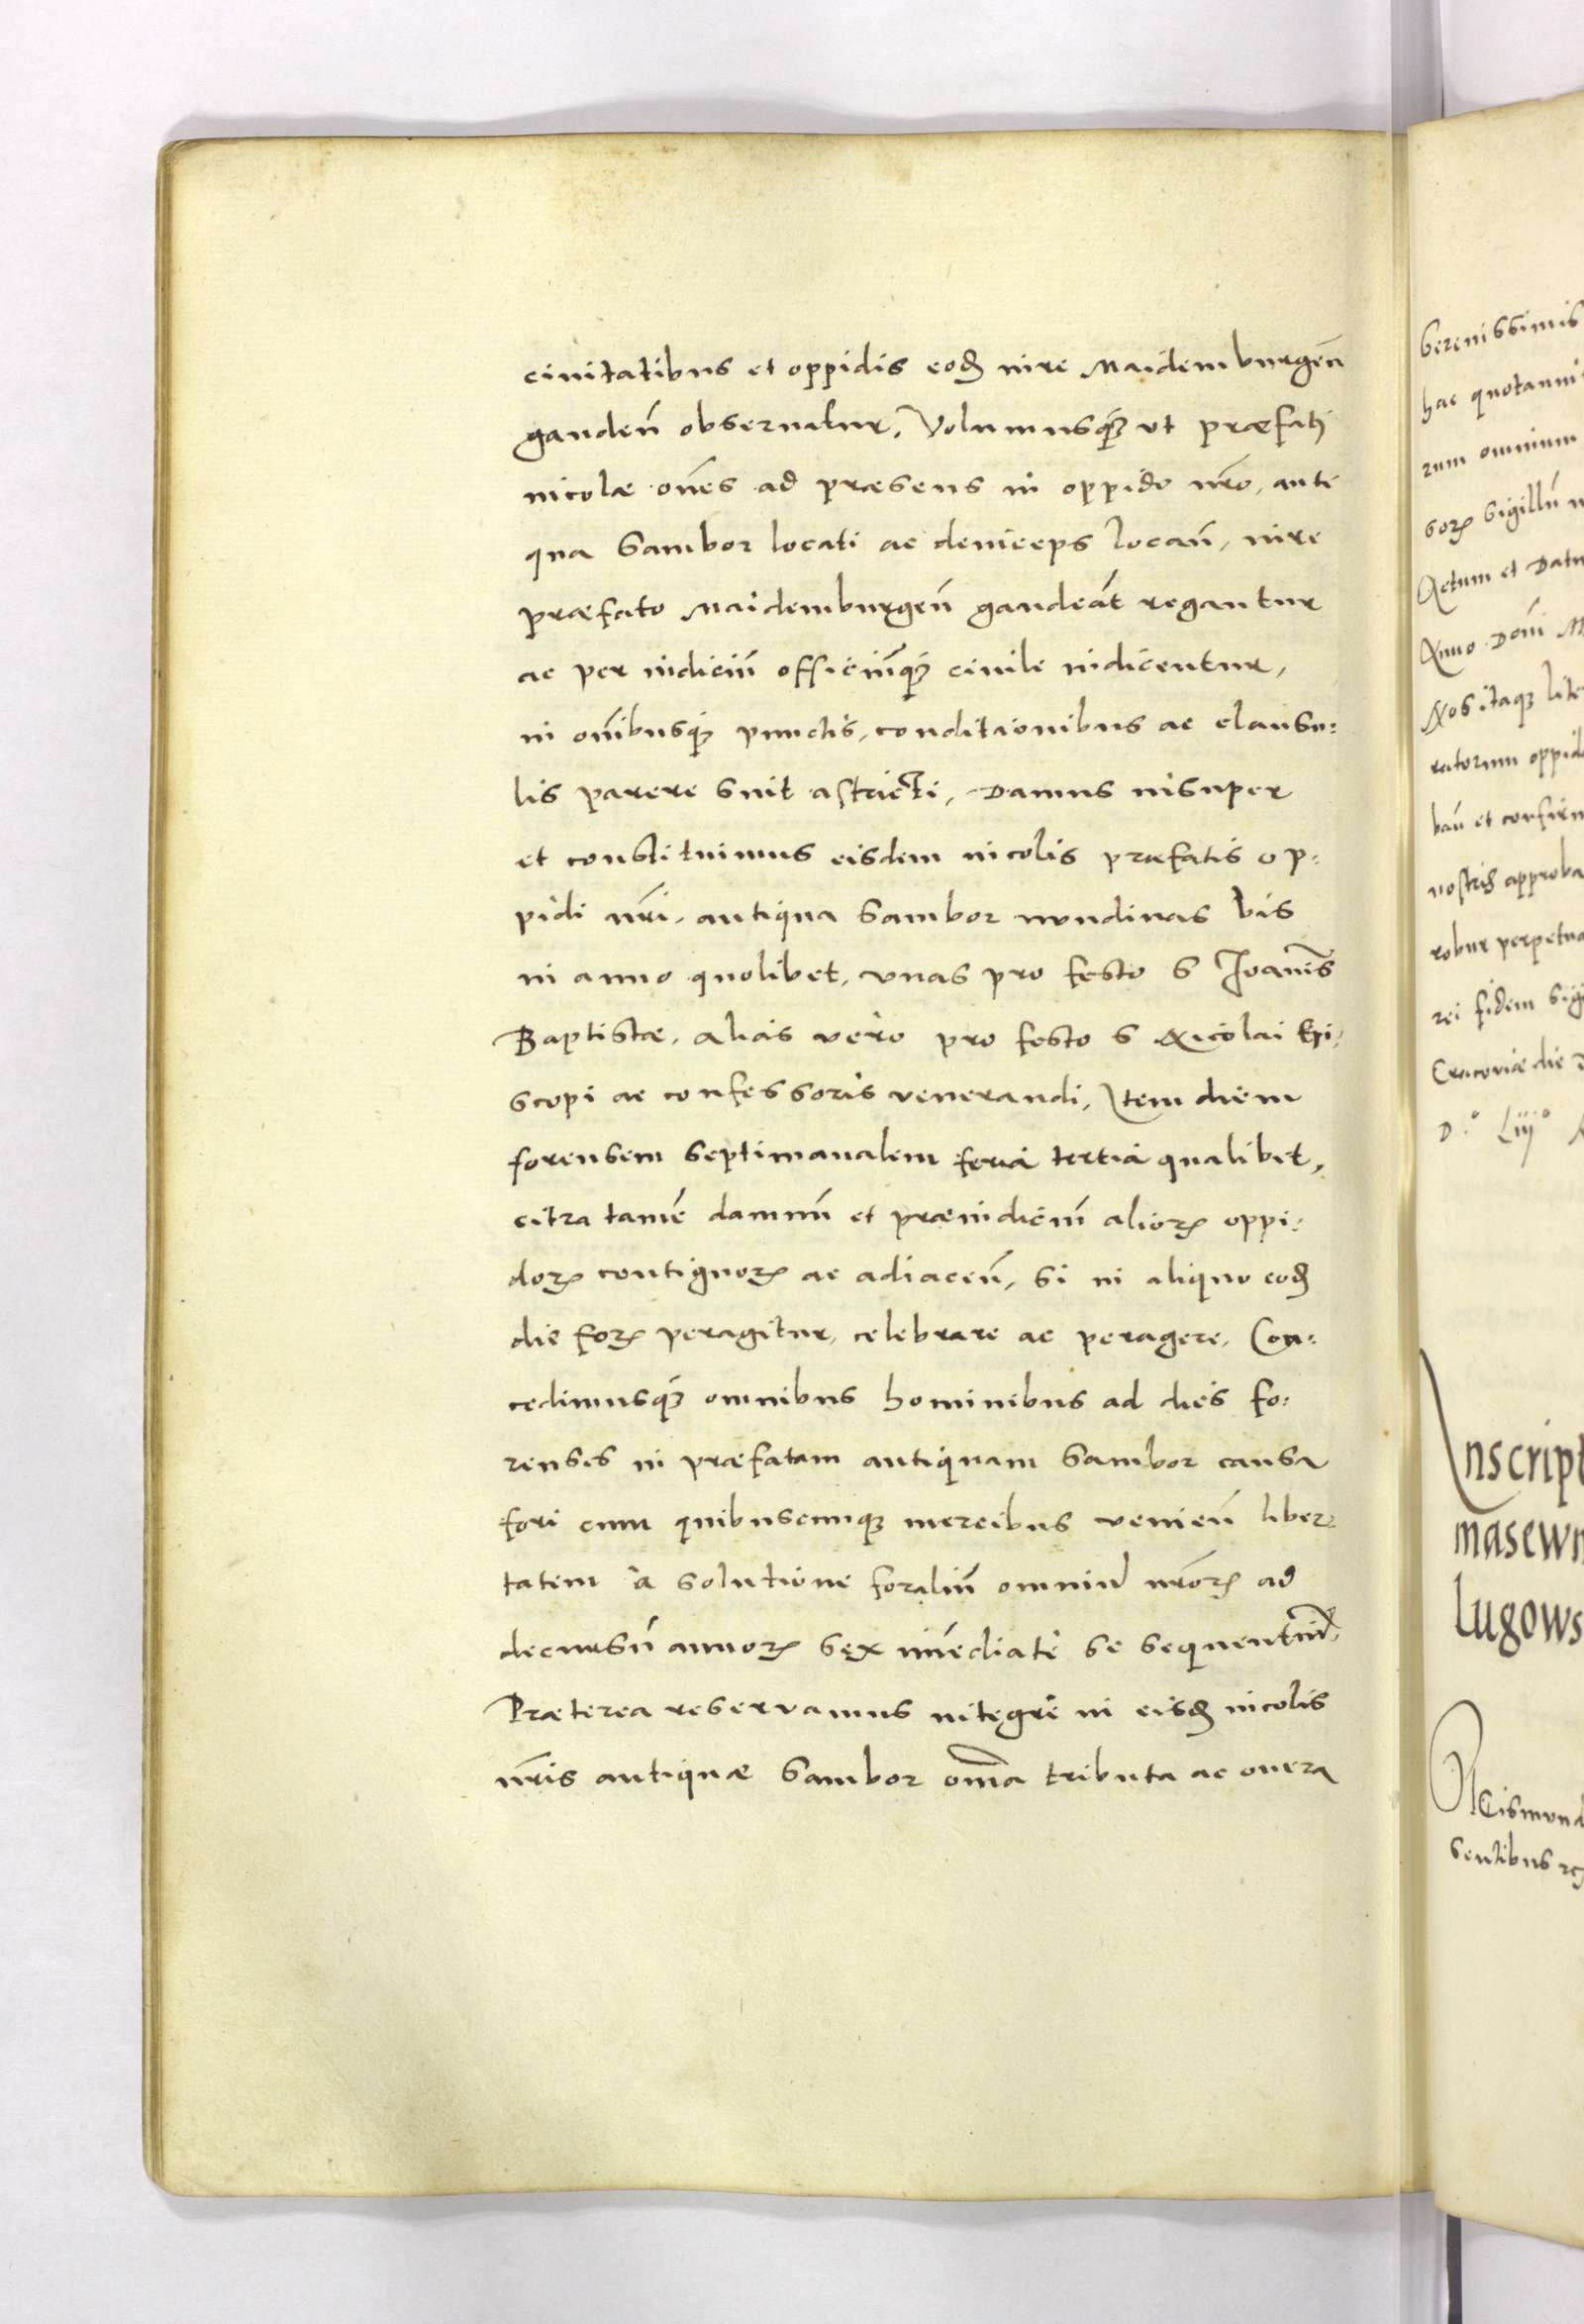 ciuitatibus et oppidis eodē iure Maidemburgeñ
gaudeñ obseruatur, Volumusq₃ ut præfati
incolæ om̃es ad præsens in oppido nr̃o, anti
qua Sambor locati ac deinceps locañ, iure
præfato Maidemburgeñ gaudeāt regantur
ac per iudiciū officiūq₃ ciuile iudicentur,
in om̃ibusq₃ punctis, conditionibus ac clausu:
lis parere sint astricti, Damus insuper
et constituimus eisdem incolis præfatis op:
pidi nr̃i, antiqua Sambor nundinas bis
in anno quolibet, unas pro festo S Joannis
Baptistæ, alias vero pro festo S Nicolai Epi:
scopi ac confessoris venerandi, Item diem
forensem septimanalem feria tertia qualibet,
citra tamē damnū et præiudiciū alioꝝ oppi:
doꝝ contiguoꝝ ac adiaceñ, si in aliquo eodē
die foꝝ peragitur, celebrare ac peragere, Con:
cedimusq₃ omnibus hominibus ad dies fo:
renses in præfatam antiquam Sambor causa
fori cum quibuscunq₃ mercibus venieñ liber:
tatem a solutione foraliū omniū nr̃oꝝ ad
decursū annoꝝ sex im̄ediate se sequentiū,
Præterea reservamus integre in eisdē incolis
nr̃is antiquæ Sambor om̃ia tributa ac onera
Serenissimis
hac quotanni
rum omnium
soꝝ Sigillū
Actum et Datu
Anno Dom̃i M
Nos itaq₃ lite
ratorum oppid
bañ et confirm
nostris approba
robur perpetua
rei fidem sig
Cracoviæ die
D.° Liij°
Inscript
masewn
lugows
Sigismund
sentibus